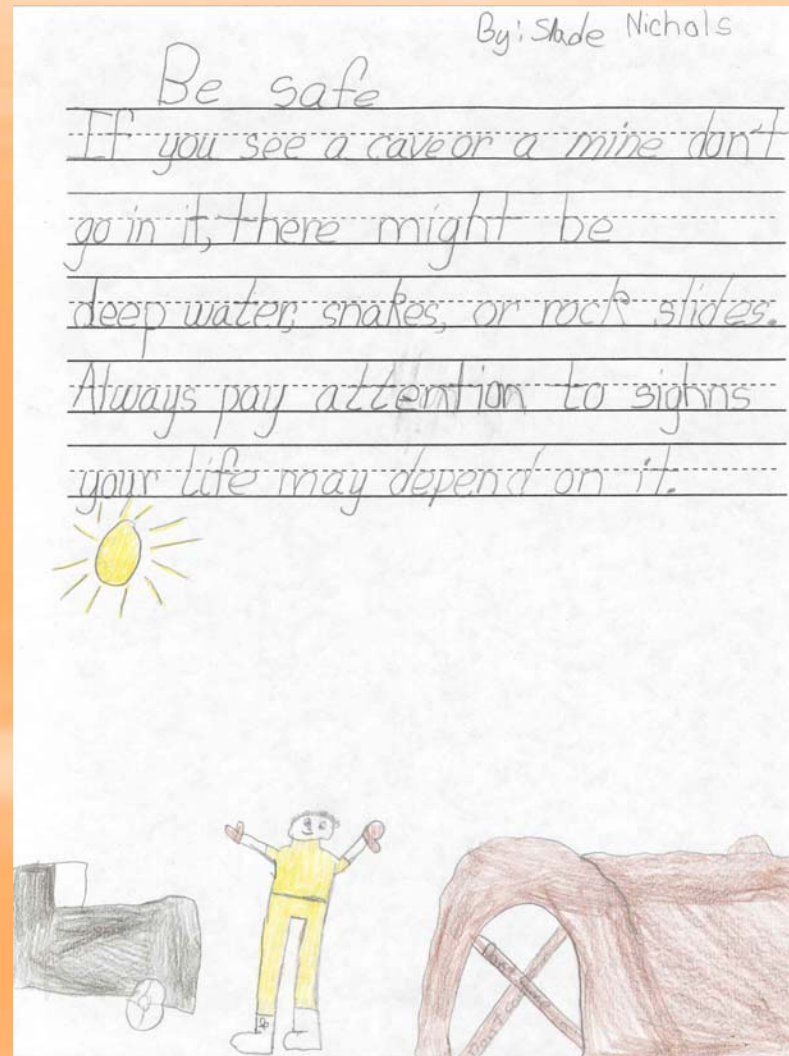 By: Slade Nichols
Be safe
If you see a cave or a mine don't
go in it, there might be
deep water, snakes, or rock slides.
Always pay attention to sighns
your life may depend on it.
Don't